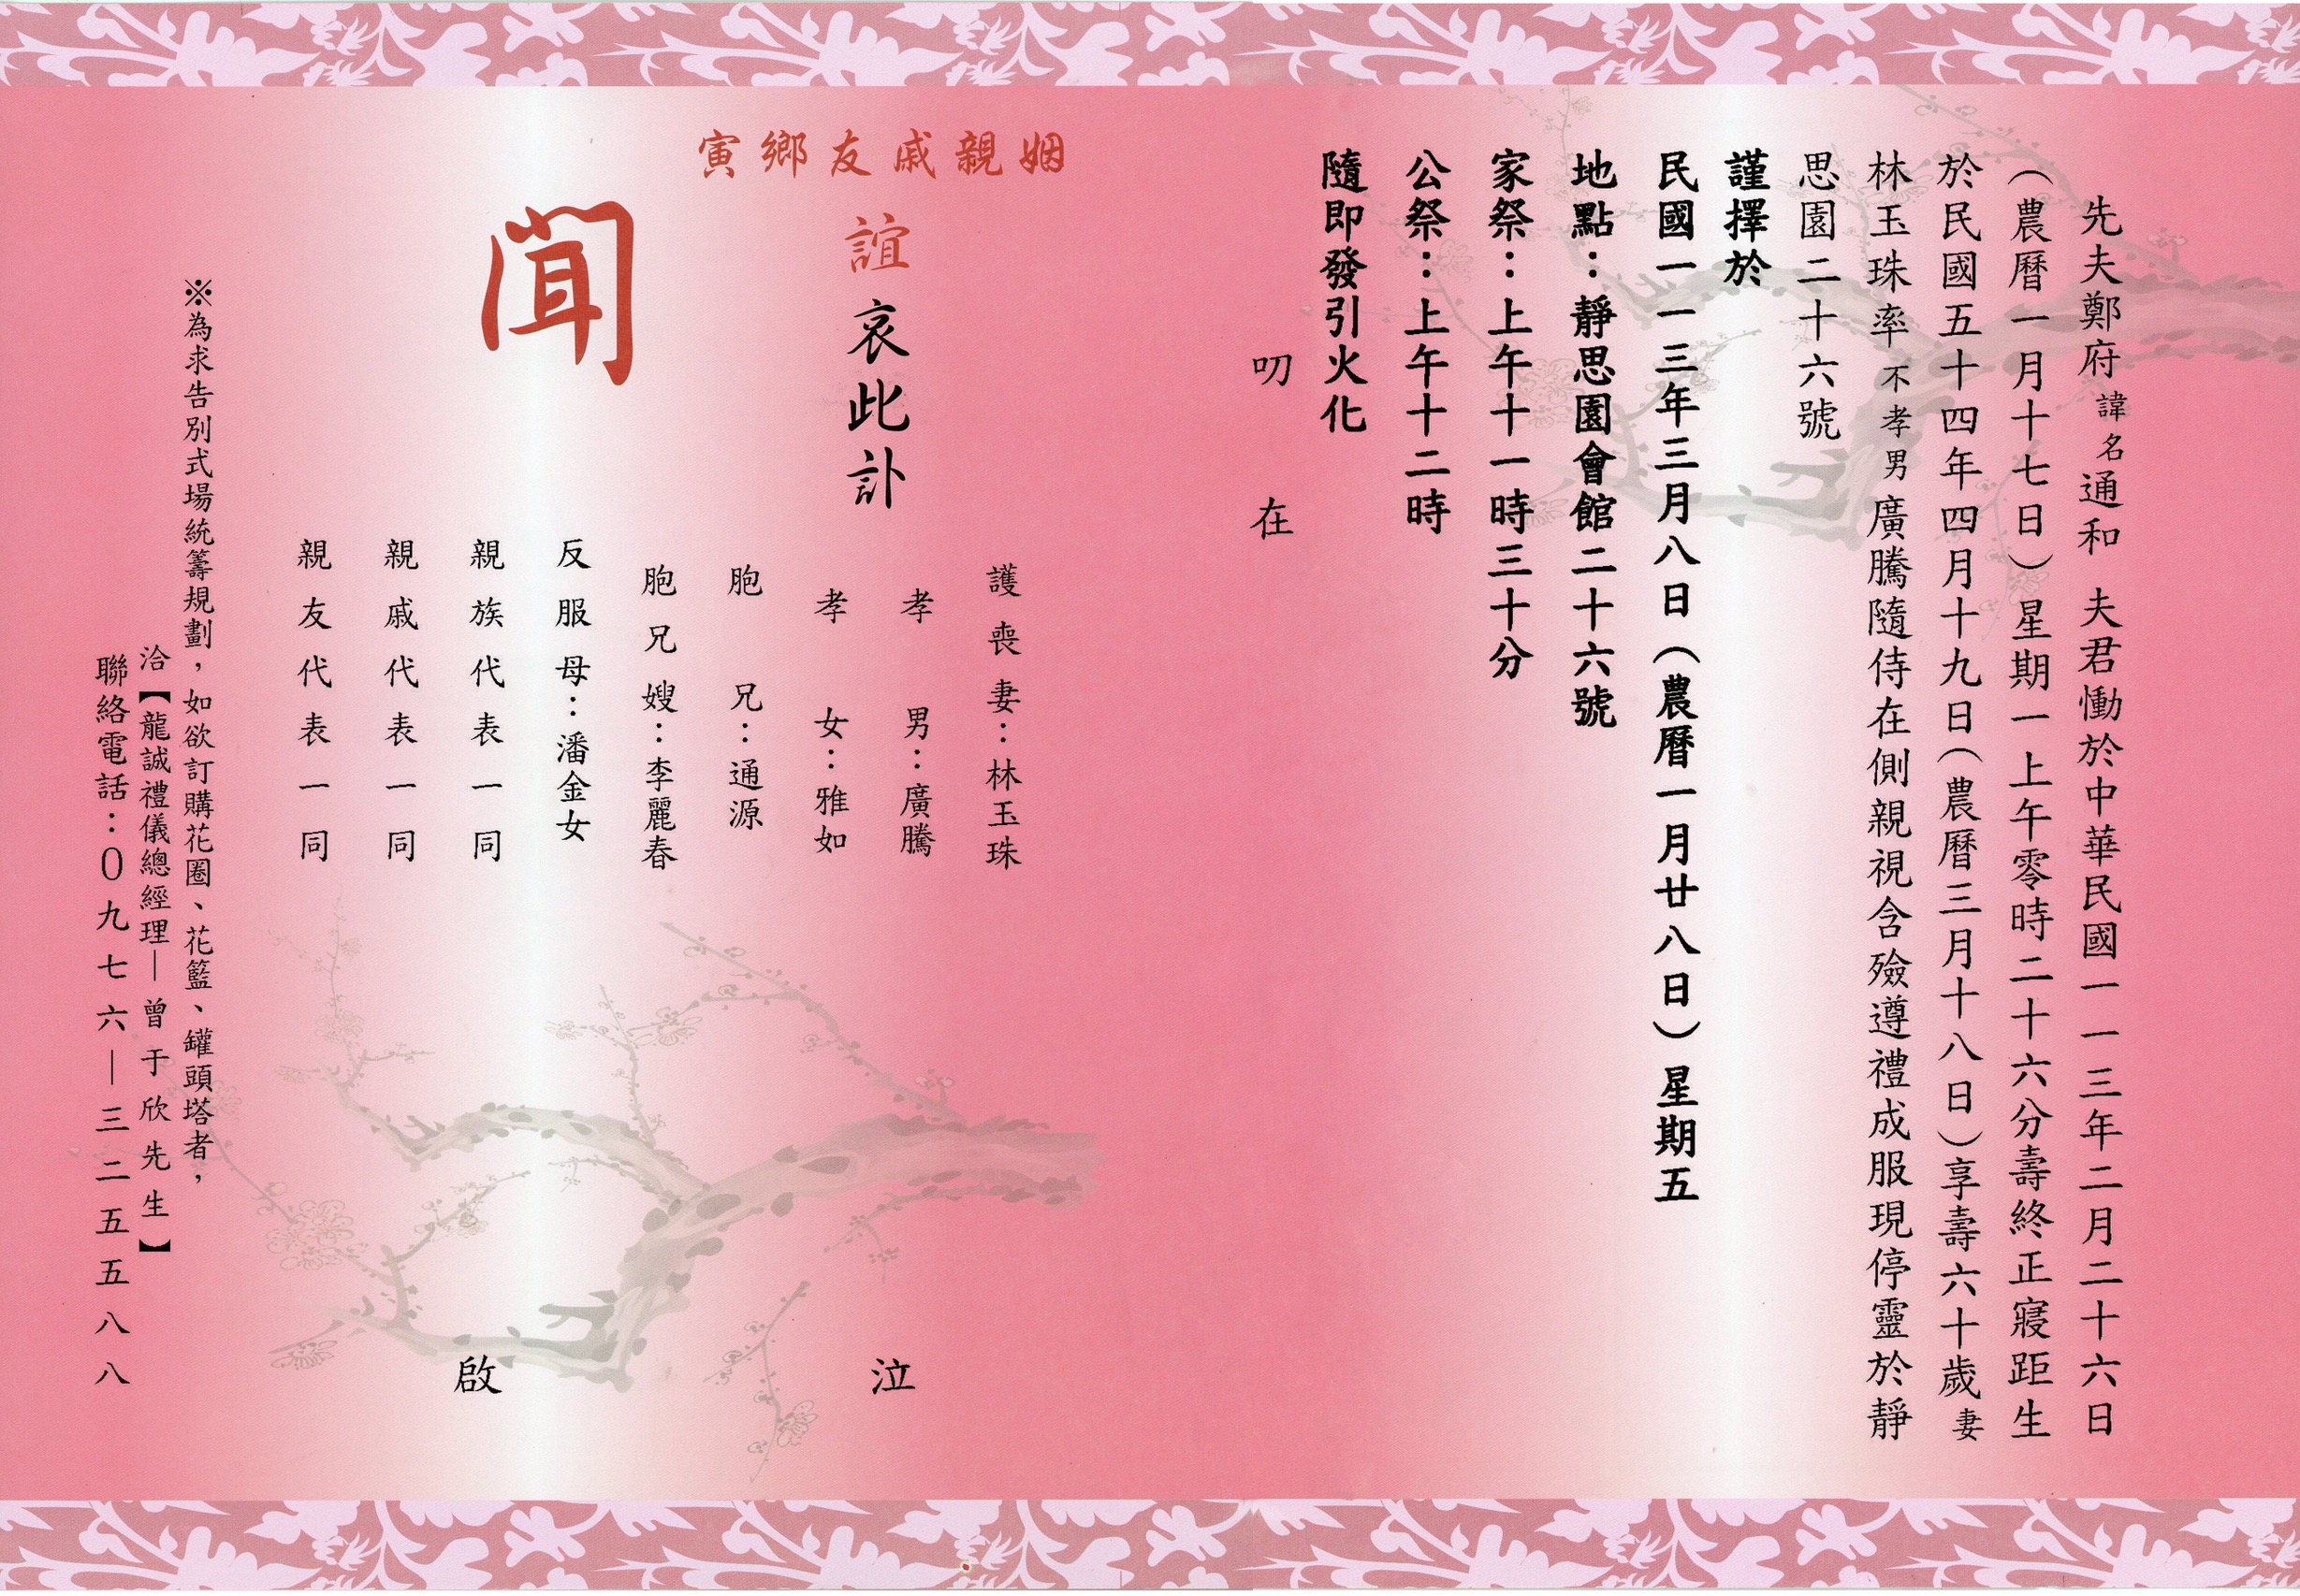 先夫鄭府諱名通和 夫君慟於中華民國一一三年二月二十六日
（農曆一月十七日）星期一上午零時二十六分壽終正寢距生
於民國五十四年四月十九日（農曆三月十八日）享壽六十歲妻
林玉珠率不孝男廣騰隨侍在側親視含殮遵禮成服現停靈於靜
思園二十六號
謹擇於
民國一一三年三月八日（農曆一月廿八日）星期五
地點：靜思園會館二十六號
家祭：上午十一時三十分
公祭：上午十二時
隨即發引火化
叨 在
姻親戚友鄉寅
誼哀此訃
聞
護喪妻：林玉珠
孝男：廣騰
孝女：雅如
胞兄：通源
胞兄嫂：李麗春
反服母：潘金女
親族代表一同
親戚代表一同
親友代表一同
泣
啟
※為求告別式場統籌規劃，如欲訂購花圈、花籃、罐頭塔者，
洽【龍誠禮儀總經理—曾于欣先生】
聯絡電話：０九七六—三二五五八八